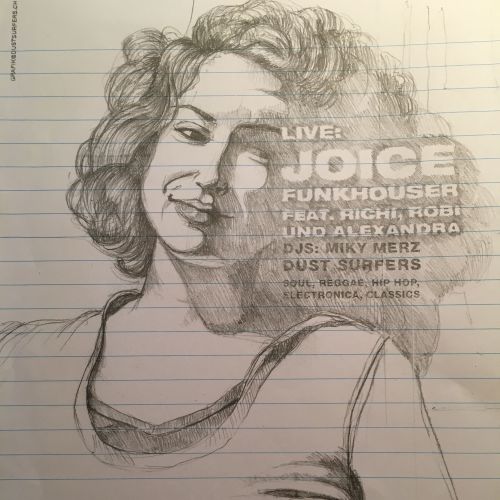 GRAFIK@DUSTSURFERS.CH
LIVE:
JOICE
FUNKHOUSER
FEAT. RICHI, ROBI
UND ALEXANDRA
DJS: MIKY MERZ
DUST SURFERS
SOUL, REGGAE, HIP HOP,
ELECTRONICA, CLASSICS